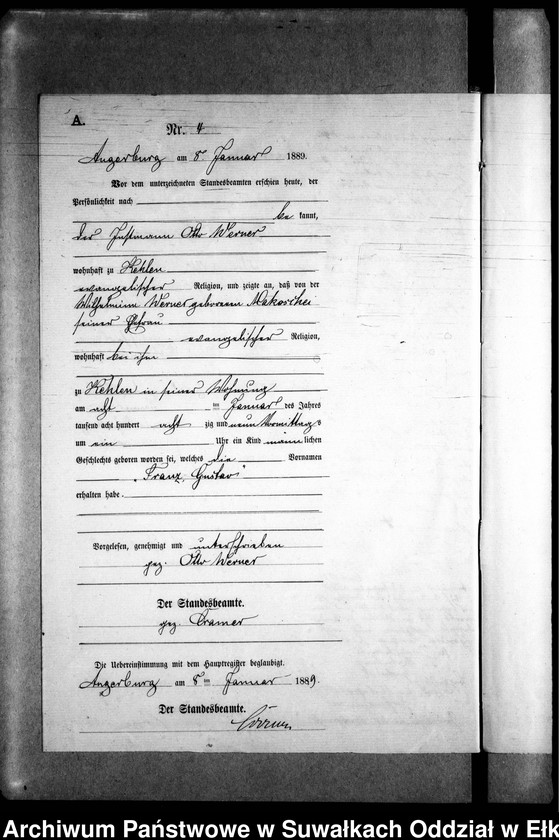 A.
Nr. 4
Angerburg am 8ten Januar 1889.
Vor dem unterzeichneten Standesbeamten erschien heute, der
Persönlichkeit nach
be kannt,
der Instmann Otto Werner
wohnhaft zu Kehlen
evangelischer Religion, und zeigte an, daß von der
Wilhelmine Werner geborenen Makoschei
seiner Ehefrau
evangelischer Religion,
wohnhaft bei ihm
zu Kehlen in seiner Wohnung
am acht ten Januar des Jahres
tausend acht hundert acht zig und neun Vormittags
um ein Uhr ein Kind männlichen
Geschlechts geboren worden sei, welches die Vornamen
"Franz, Gustav"
erhalten habe.
Vorgelesen, genehmigt und unterschrieben
gez. Otto Werner
Der Standesbeamte.
gez. Cramer
Die Uebereinstimmung mit dem Hauptregister beglaubigt.
Angerburg am 8ten Januar 1889.
Der Standesbeamte.
Archiwum Państwowe w Suwałkach Oddział w Ełk